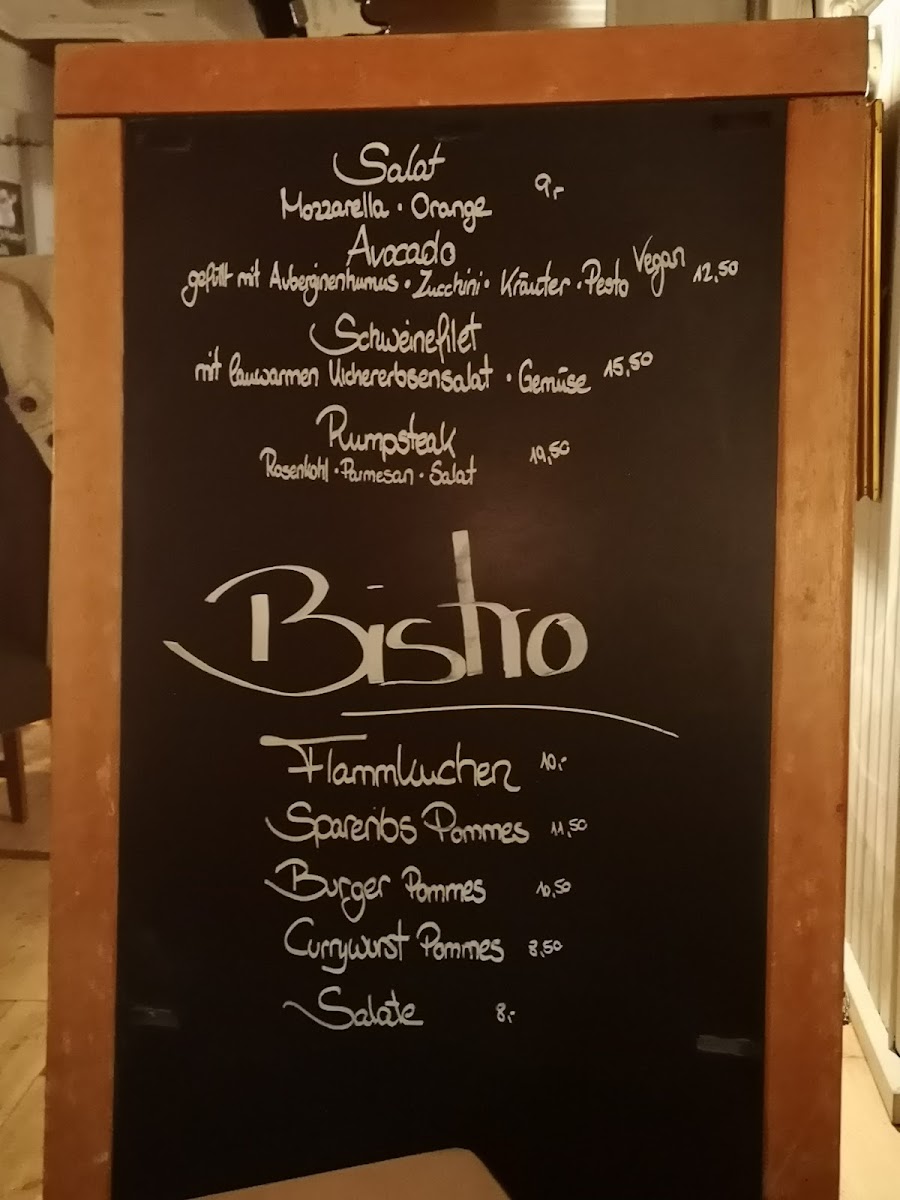 Salat 9,-
Mozzarella · Orange
Avocado
gefüllt mit Auberginenhumus · Zucchini · Kräuter · Pesto Vegan 12,50
Schweinefilet
mit lauwarmen Kichererbsensalat · Gemüse 15,50
Rumpsteak
Rosenkohl · Parmesan · Salat 19,50
Bistro
Flammkuchen 10,-
Spareribs Pommes 11,50
Burger Pommes 10,50
Currywurst Pommes 8,50
Salate 8,-